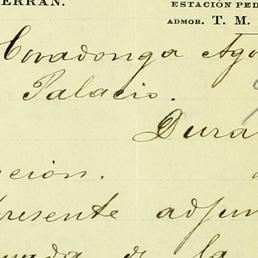 ERRAN.
ESTACIÓN PED
ADMOR. T. M.
Covadonga Ago
Palacio.
Dura
ción.
resente adjun
de la